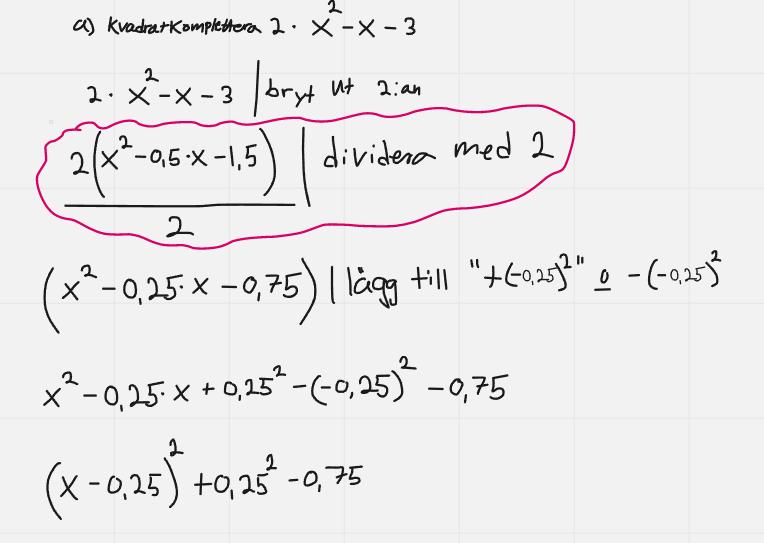 a) Kvadratkomplettera 2 · x² - x - 3
2 · x² - x - 3 | bryt ut 2:an
2(x² - 0,5·x - 1,5) | dividera med 2
2
(x² - 0,25·x - 0,75) | lägg till "+(-0,25)²" o -(-0,25)²
x² - 0,25·x + 0,25² - (-0,25)² - 0,75
(x - 0,25)² + 0,25² - 0,75